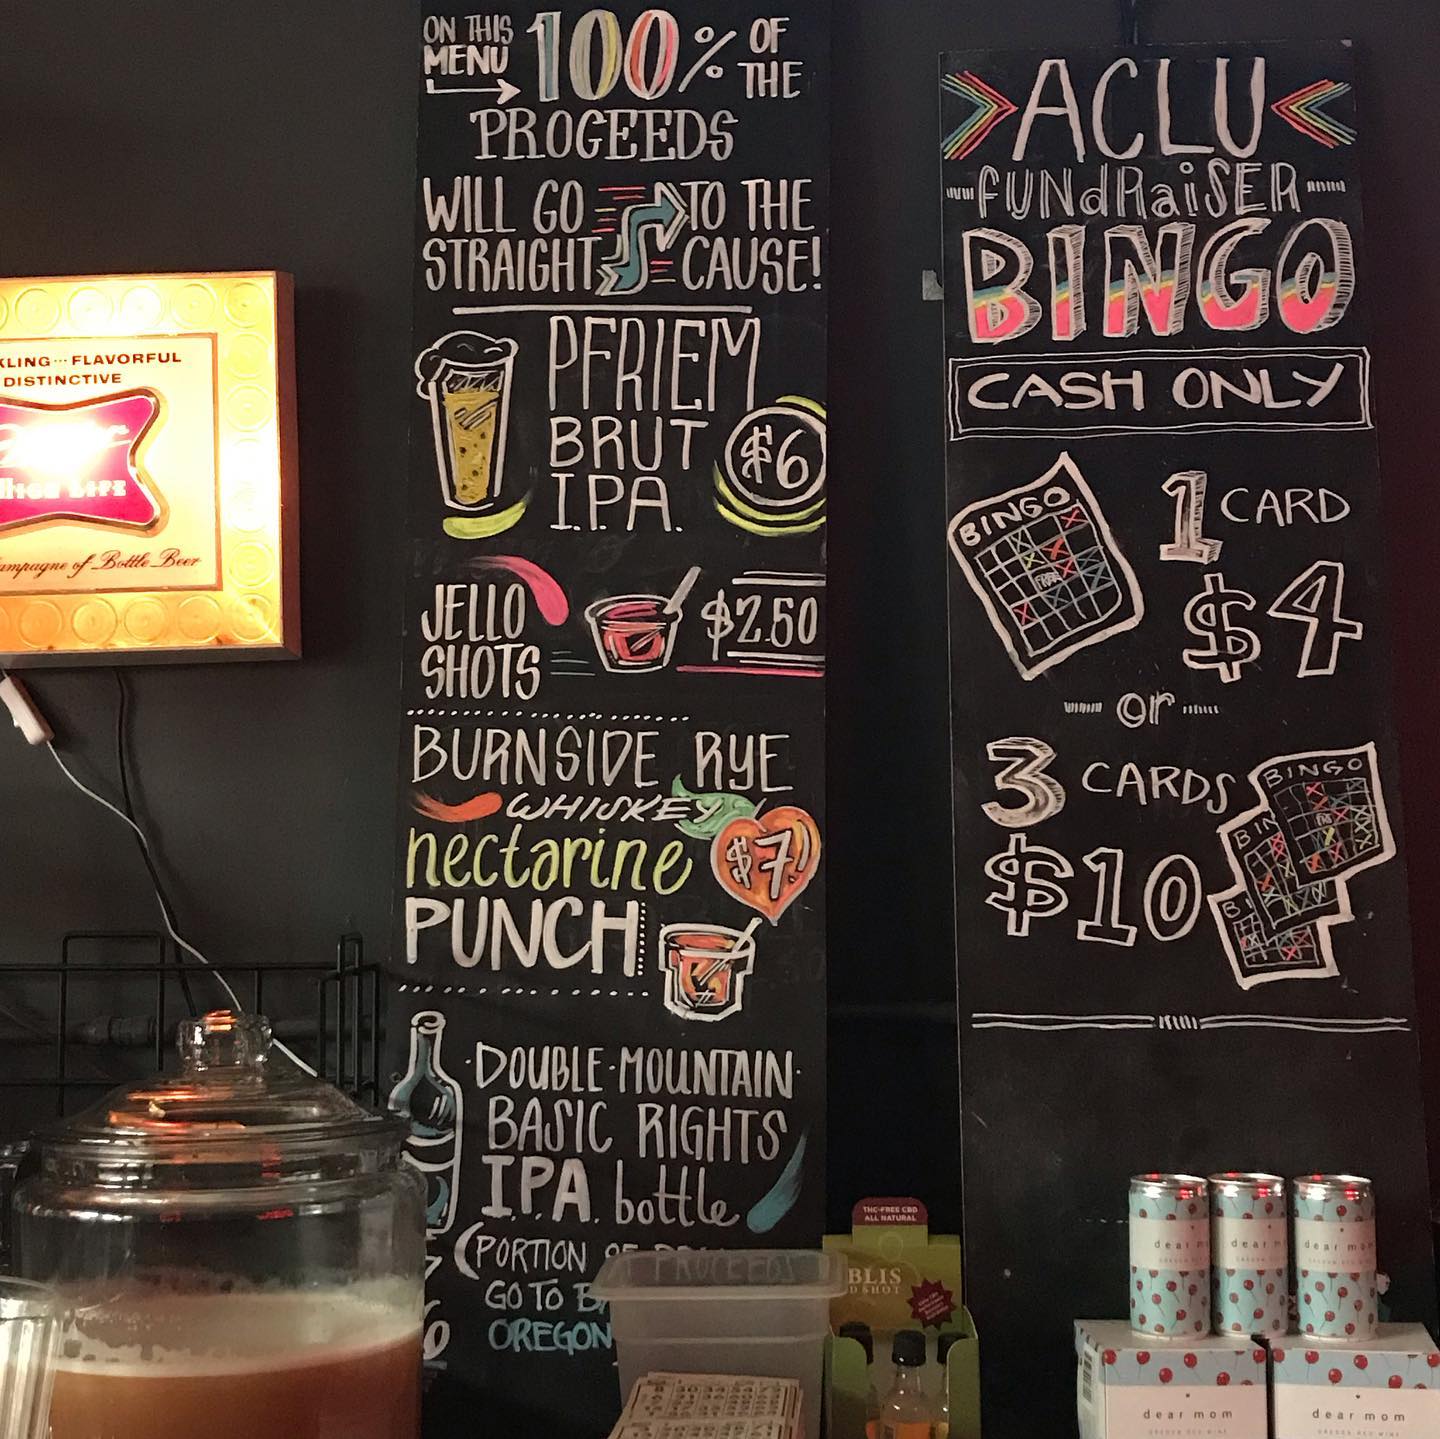 ON THIS
MENU
100% OF
THE
PROGEEDS
WILL GO TO THE
STRAIGHT CAUSE!
PFRIEM
BRUT
I.P.A.
$6
JELLO
SHOTS
$2.50
BURNSIDE RYE
WHISKEY
nectarine
$7!
PUNCH
·DOUBLE·MOUNTAIN·
BASIC RIGHTS
I.P.A. bottle
(PORTION OF PROCEEDS
GO TO
OREGON
ACLU
FUNdRaiSER
BINGO
CASH ONLY
BINGO
FREE
1 CARD
$4
or
3 CARDS
$10
BINGO
FLAVORFUL
DISTINCTIVE
HIGH LIFE
of Bottle Beer
THC-FREE CBD
ALL NATURAL
dear mom
dear mom
dear mom
OREGON RED WINE
dear mom
OREGON RED WINE